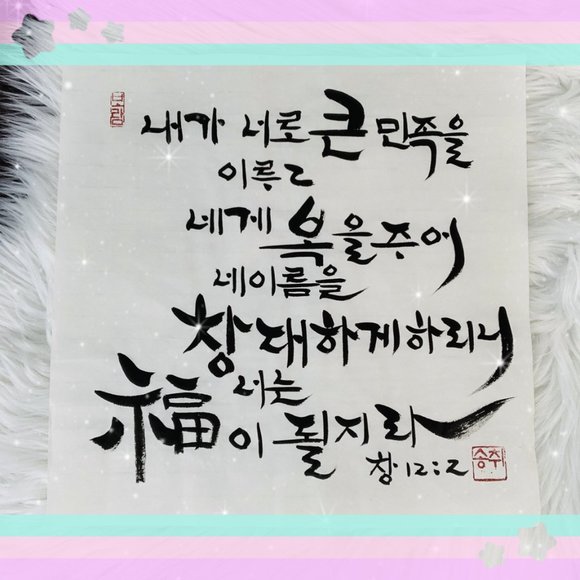 내가 너로 큰 민족을
이루고
네게 복을 주어
네 이름을
창대하게 하리니
너는
福이 될지라
창 12:2